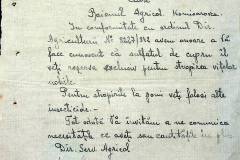 Către
Raionul Agricol Komisarovca.
In conformitate cu ordinul Dir.
Agriculturii Nº 22671/942 avem onoare a Vă
face cunoscut că sulfatul de cupru îl
veți rezerva exclusiv pentru stropirea vițelor
nobile.
Pentru stropirea la pomi veți folosi alte
insecticide.-
Tot odată Vă invităm a ne comunica
necesitățile ce aveți sau cantitățile în plus
Dir. Serv. Agricol